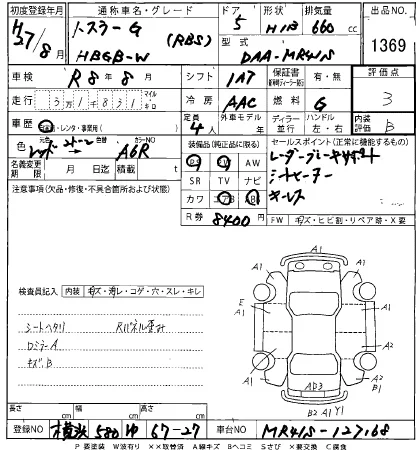 初度登録年月 通称車名・グレード ドア 形状 排気量 出品No
H27/8月 ハスラーG (RBS) 5 H/B 660cc 1369
HBGB-W 型式 DAA-MR41S
車検 R8年8月 シフト IAT 保証書 有・無 評価点 3
走行 31831 マイル キロ 冷房 AAC 燃料 G
車歴 自家用・レンタ・事業用( ) 定員 4人 外車モデル 年 ディーラー 並行 ハンドル 左・右 内装評価 B
元色 色替 カラーNO
色 A6R
名義変更期限 月 日迄 積載 t
装備品(純正品に限る)
PS PW AW
SR TV ナビ
カワ エアB ABS
R券 8400円
セールスポイント(正常に機能するもの)
レーダーブレーキサポート
シートヒーター
キーレス
注意事項(欠品・修復・不具合箇所および状態)
FW キズ・ヒビ割・リペア跡・X要
検査員記入 内装 キズ・汚レ・コゲ・穴・スレ・キレ
シートヘタリ Rパネル歪み
DミラーA
キズ、B
A1
A1 A1
E
A1 A1
A1 A2
A1 A2
B1
AD3
B2 A1 Y1
長さ cm 幅 cm 高さ cm
登録NO 横浜 580 ゆ 67-27 車台NO MR41S-127168
P 要塗装 W波有り ××取替済 A線キズ Bヘコミ Sさび ×要交換 C腐食